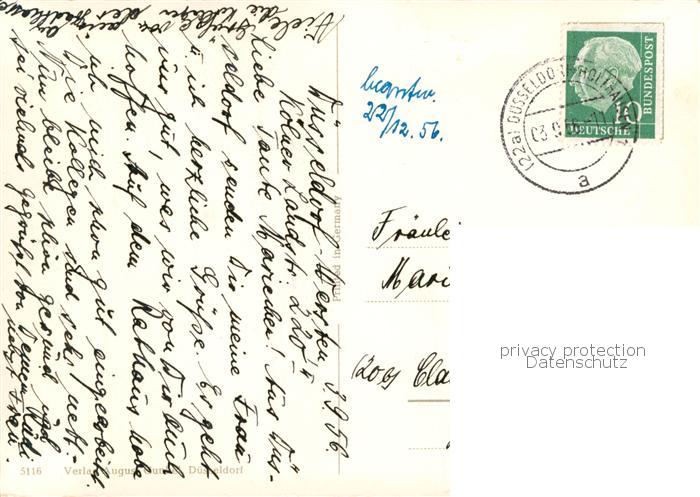 Düsseldorf Wersten, 3.9.56
Kölner Landstr. 220
Liebe Tante Mariechen! Aus Düs-
seldorf senden Dir meine Frau
u. ich herzliche Grüße. Es geht
uns gut, was wir von Dir auch
hoffen. Auf dem Rathaus habe
ich mich schon gut eingearbeitet.
Die Kollegen sind sehr nett.
Nun bleibe schön gesund und
sei vielmals gegrüßt von Deinem Rudi
nebst Frau.
Viele Grüße von
die Kollegen der Stadtkasse
beantw.
22/12.56.
Fräule
Mari
(20a) Cla
(22a) DÜSSELDO
a
10
DEUTSCHE
BUNDESPOST
Printed in Germany
5116 Verlag August Düsseldorf
privacy protection
Datenschutz